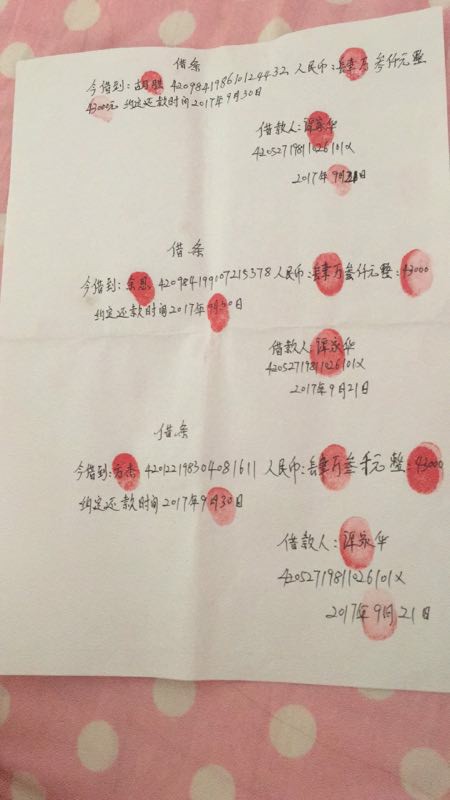 借条
今借到：胡胜 420984198610124432 人民币：肆万叁仟元整
43000元 约定还款时间2017年9月30日
借款人：谭家华
42052719811026101X
2017年9月21日
借条
今借到：余恩 420984199107215378 人民币：肆万叁仟元整：43000
约定还款时间2017年9月30日
借款人：谭家华
42052719811026101X
2017年9月21日
借条
今借到：方杰 420122198304081611 人民币：肆万叁仟元 整：43000
约定还款时间2017年9月30日
借款人：谭家华
42052719811026101X
2017年9月21日